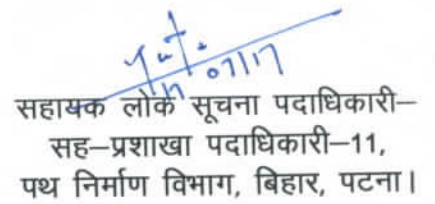 सहायक लोक सूचना पदाधिकारी–
सह–प्रशाखा पदाधिकारी–11,
पथ निर्माण विभाग, बिहार, पटना।